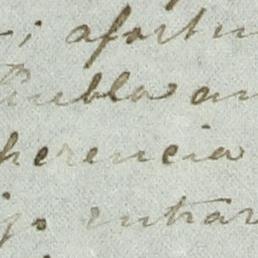 ; afortu
Puebla an
herencia
entrar